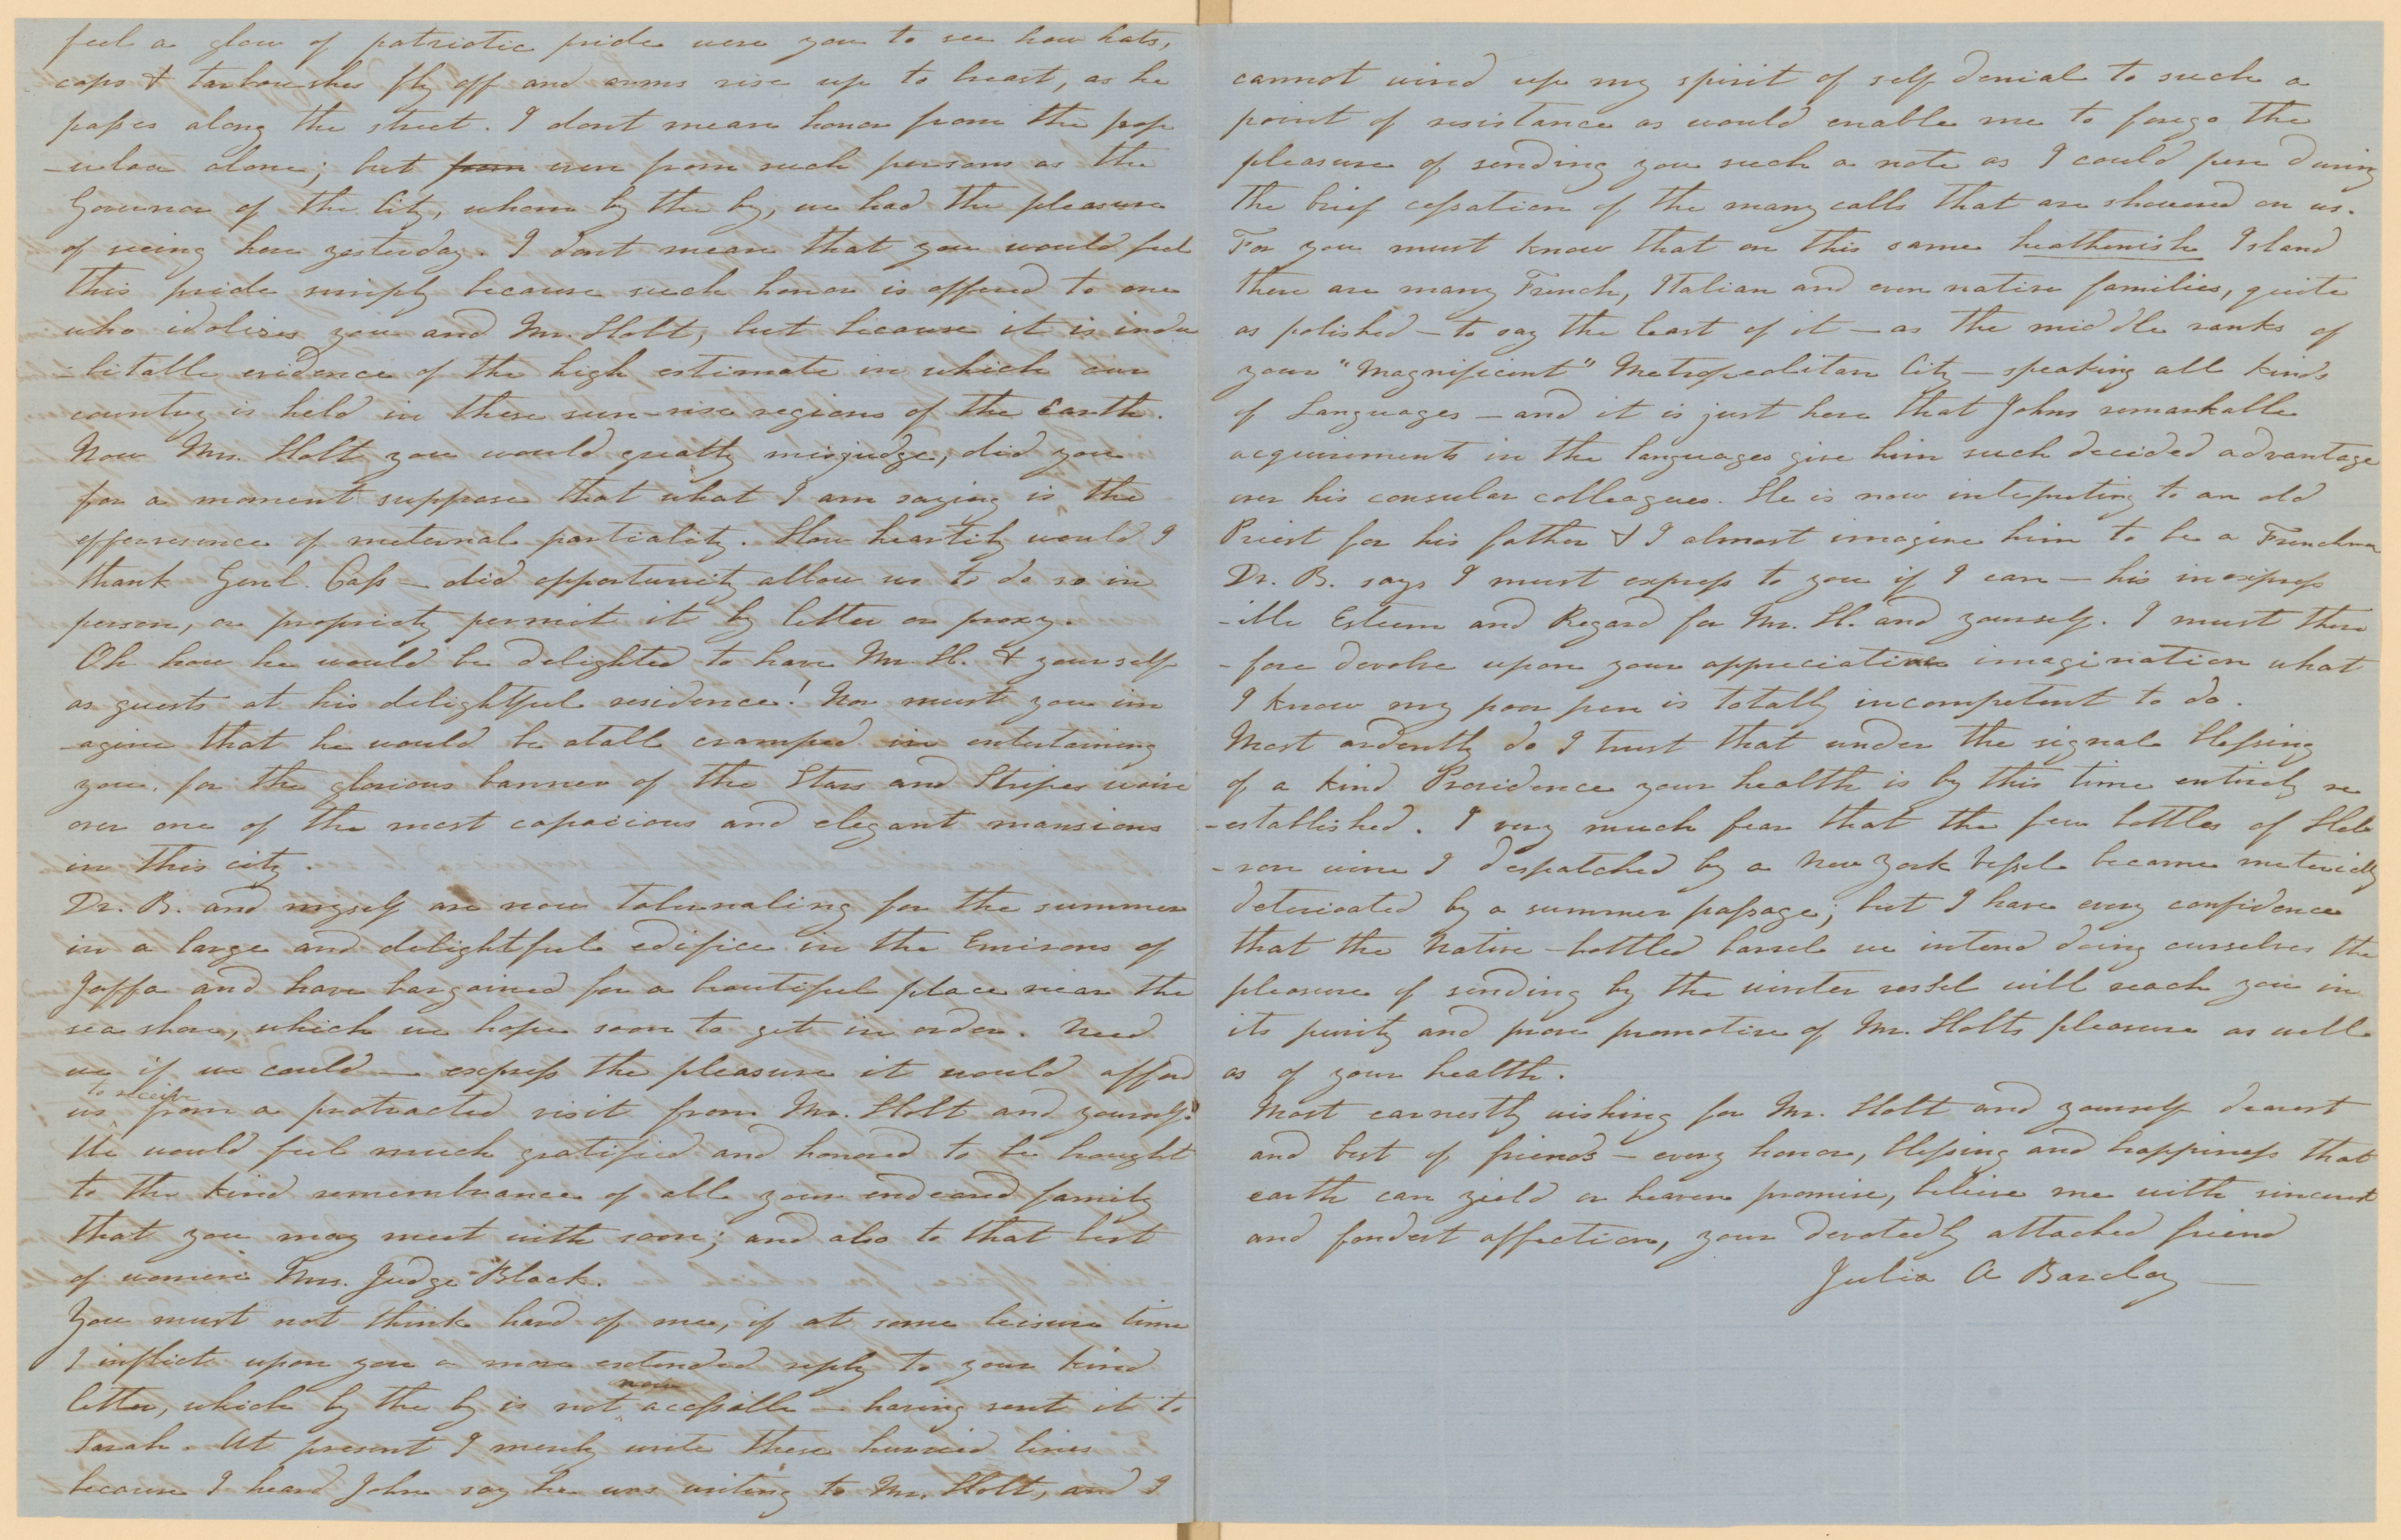 feel a glow of patriotic pride were you to see how hats,
caps & tarboushes fly off and arms rise up to breast, as he
passes along the street. I dont mean honor from the pop
-ulace alone; but from even from such persons as the
Governor of the City, whom by the by, we had the pleasure
of seeing here yesterday. I dont mean that you would feel
this pride simply because such honor is offered to one
who idolises you and Mr. Holt, but because it is indu
-bitable evidence of the high estimate in which our
country is held in these sun-rise regions of the Earth.
Now Mrs. Holt you would greatly misjudge, did you
for a moment suppose that what I am saying is the
effervesence of maternal partiality. How heartily would I
thank Genl. Cass — did opportunity allow us to do so in
person, or propriety permit it by letter or proxy.
Oh how he would be delighted to have Mr. H. & yourself
as guests at his delightful residence! Nor must you im
-agine that he would be atall cramped in entertaining
you, for the glorious banner of the Stars and Stripes wave
over one of the most capacious and elegant mansions
in this city.
Dr. B. and myself are now tabernacling for the summer
in a large and delightful edifice in the Environs of
Jaffa and have bargained for a beautiful place near the
sea shore, which we hope soon to get in order. Need
we if we could — express the pleasure it would afford
to receive
us from a protracted visit from Mr. Holt and yourself?
We would feel much gratified and honored to be brought
to the kind remembrance of all your endeared family
that you may meet with soon; and also to that best
of women Mrs. Judge Black.
You must not think hard of me, if at some leisure time
I inflict upon you a more extended reply to your kind
now
letter, which by the by is not accessible — having sent it to
Sarah. At present I merely write these hurried lines
because I heard John say he was writing to Mr. Holt, and I
cannot wind up my spirit of self denial to such a
point of resistance as would enable me to forego the
pleasure of sending you such a note as I could pen during
the brief cessation of the many calls that are showered on us.
For you must know that on this same heathenish Island
there are many French, Italian and even native families, quite
as polished — to say the least of it — as the middle ranks of
your "Magnificent" Metropolitan City — speaking all kinds
of Languages — and it is just here that Johns remarkable
acquirements in the languages give him such decided advantage
over his consular colleagues. He is now interpreting to an old
Priest for his father & I almost imagine him to be a Frenchman
Dr. B. says I must express to you if I can — his inexpress
-ible Esteem and Regard for Mr. H. and yourself. I must there
-fore devolve upon your appreciative imagination what
I know my poor pen is totally incompetent to do.
Most ardently do I trust that under the signal blessing
of a kind Providence your health is by this time entirely re
-established. I very much fear that the few bottles of Heb
-ron wine I despatched by a New York Vessel became materially
deteriorated by a summer passage; but I have every confidence
that the Native-bottled barrel we intend doing ourselves the
pleasure of sending by the winter vessel will reach you in
its purity and prove promotive of Mr. Holts pleasure as well
as of your health.
Most earnestly wishing for Mr. Holt and yourself dearest
and best of friends — every honor, blessing and happiness that
earth can yield or heaven promise, believe me with sincerest
and fondest affection, your devotedly attached friend
Julia A Barclay —